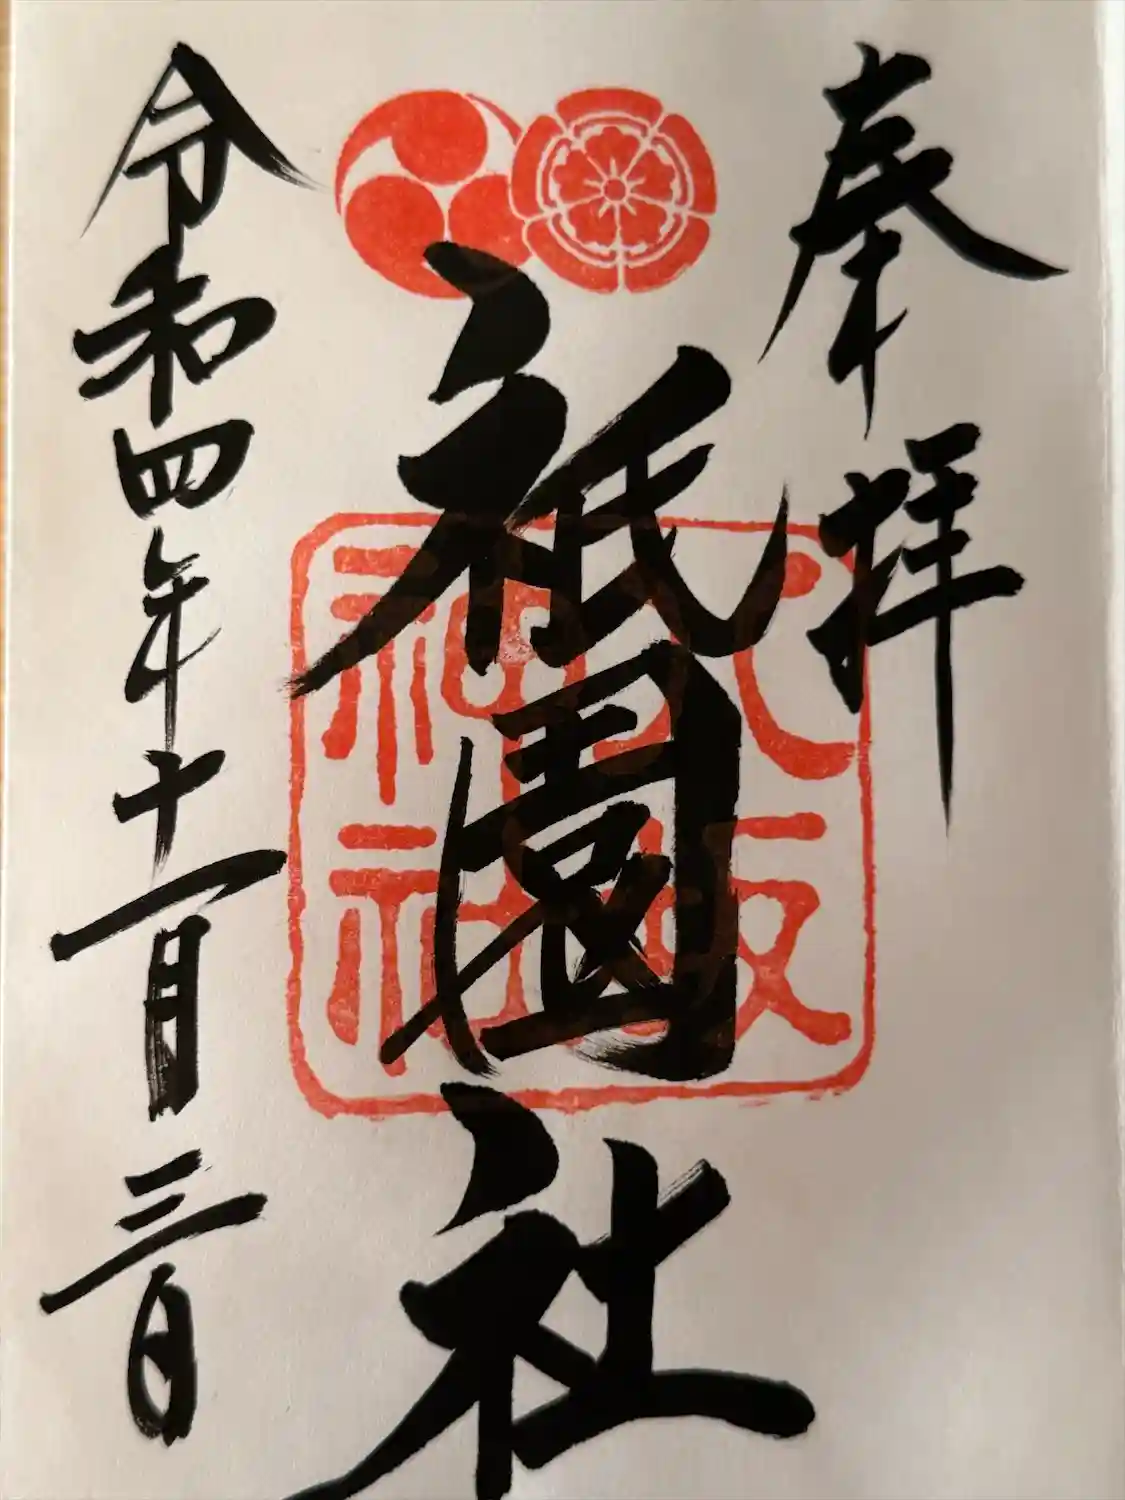 奉拝
祇園社
八坂神社
令和四年十一月三日